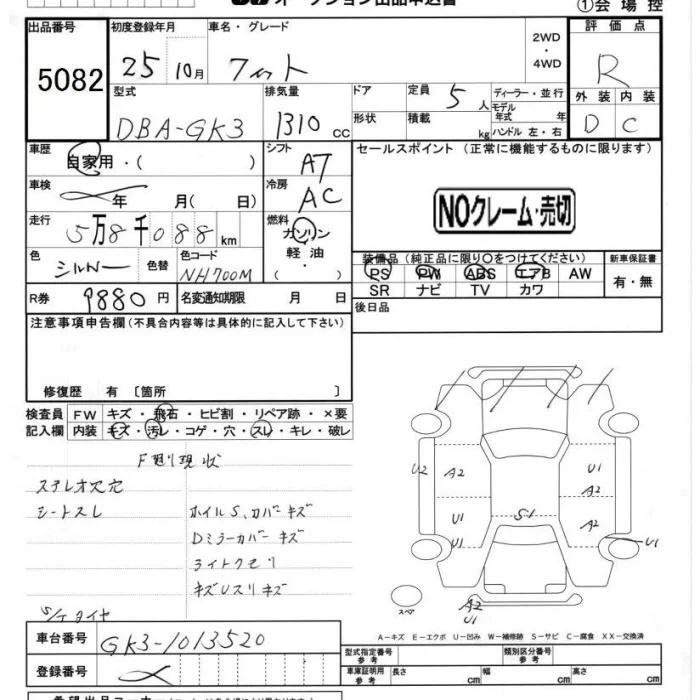 オークション出品申込書
①会場控
出品番号
5082
初度登録年月
25 10月
車名・グレード
フィット
2WD
・
4WD
評価点
R
外装 内装
D C
型式
DBA-GK3
排気量
1310 cc
ドア
形状
定員 5 人
積載 kg
ディーラー・並行
モデル年式 年
ハンドル 左・右
車歴
自家用・( )
シフト
AT
セールスポイント (正常に機能するものに限ります)
NOクレーム・売切
車検
年 月( 日)
冷房
AC
走行
5万8千088 km
燃料
ガソリン
軽油・
( )
色
シルバー
色替
色コード
NH700M
装備品 (純正品に限り○をつけてください)
PS PW ABS エアB AW
SR ナビ TV カワ
新車保証書
有・無
R券 9880円
名変通知期限 月 日
後日品
注意事項申告欄(不具合内容等は具体的に記入して下さい)
修復歴 有 〔箇所 〕
検査員
記入欄
FW キズ・飛石・ヒビ割・リペア跡・×要
内装 キズ・汚レ・コゲ・穴・スレ・キレ・破レ
F廻り現状
ステレオ欠穴
シートスレ
ホイルS、カバーキズ
Dミラーカバーキズ
ライトクモリ
キズUスリキズ
S/Tタイヤ
U2 A2 U1
A2
U1 S1 A2
U1 U1
スペ
A2
U1
A-キズ E-エクボ U-凹み W-補修跡 S-サビ C-腐食 XX-交換済
車台番号
GK3-1013520
登録番号
型式指定番号
参考
類別区分番号
参考
車庫証明用
参考
長さ cm 幅 cm 高さ cm
希望出品コーナー